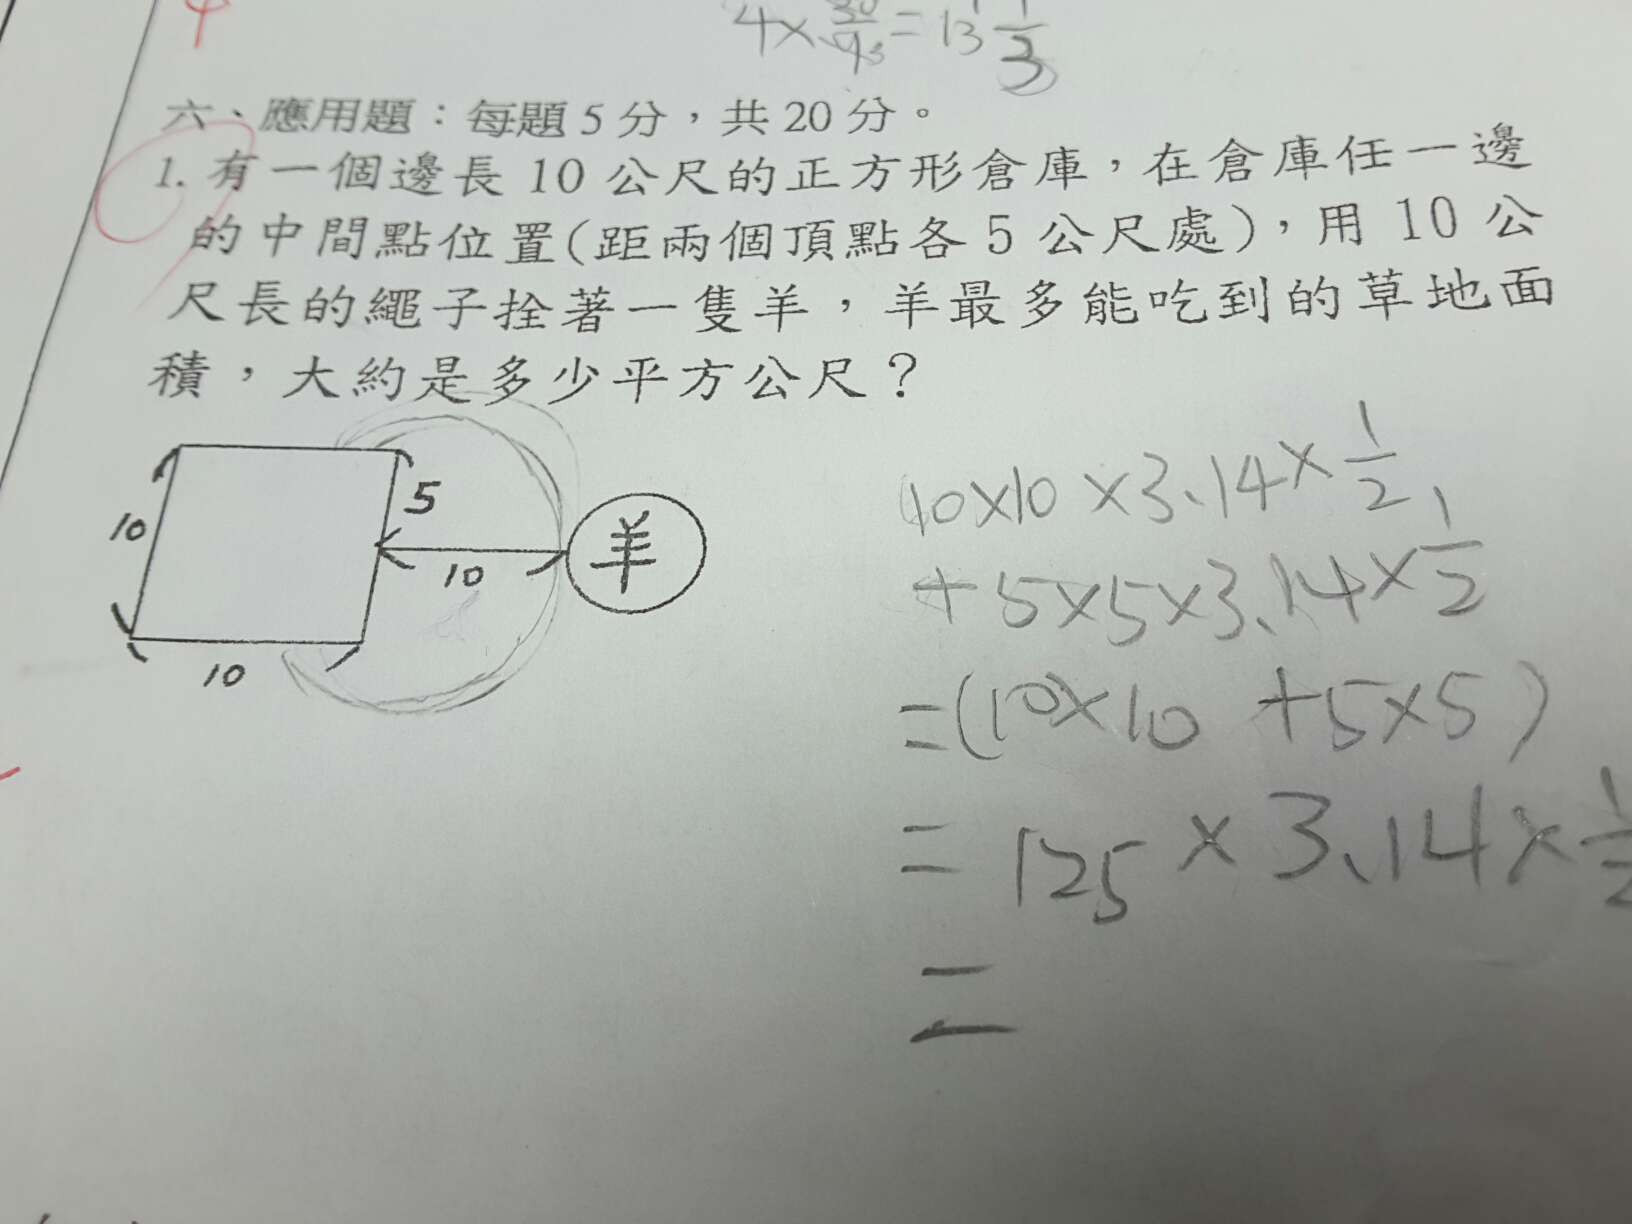 4×30/9 3=13 1/3
六、應用題：每題5分，共20分。
1. 有一個邊長10公尺的正方形倉庫，在倉庫任一邊
的中間點位置(距兩個頂點各5公尺處)，用10公
尺長的繩子拴著一隻羊，羊最多能吃到的草地面
積，大約是多少平方公尺？
10
5
10
羊
10
10×10×3.14×1/2
+5×5×3.14×1/2
=(10×10+5×5)
=125×3.14×1/2
=